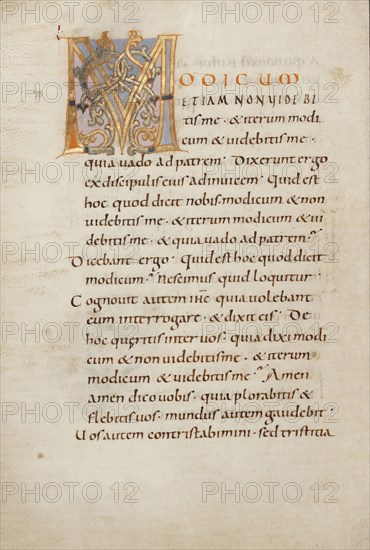 MODICUM
ETIAM NON VIDEBI
tis me · & iterum modi
cum & videbitis me ·
quia vado ad patrem · Dixerunt ergo
ex discipulis eius ad invicem · Quid est
hoc quod dicit nobis · modicum & non
videbitis me · & iterum modicum & vi
debitis me · & quia vado ad patrem ·
Dicebant ergo · Quid est hoc quod dicit
modicum · Nescimus quid loquitur ·
Cognovit autem ihc quia volebant
eum interrogare · & dixit eis · De
hoc quęritis inter vos · quia dixi modi
cum & non videbitis me · & iterum
modicum & videbitis me · Amen
amen dico vobis · quia plorabitis &
flebitis vos · mundus autem gaudebit ·
Vos autem contristabimini · sed tristitia
PHOTO 12